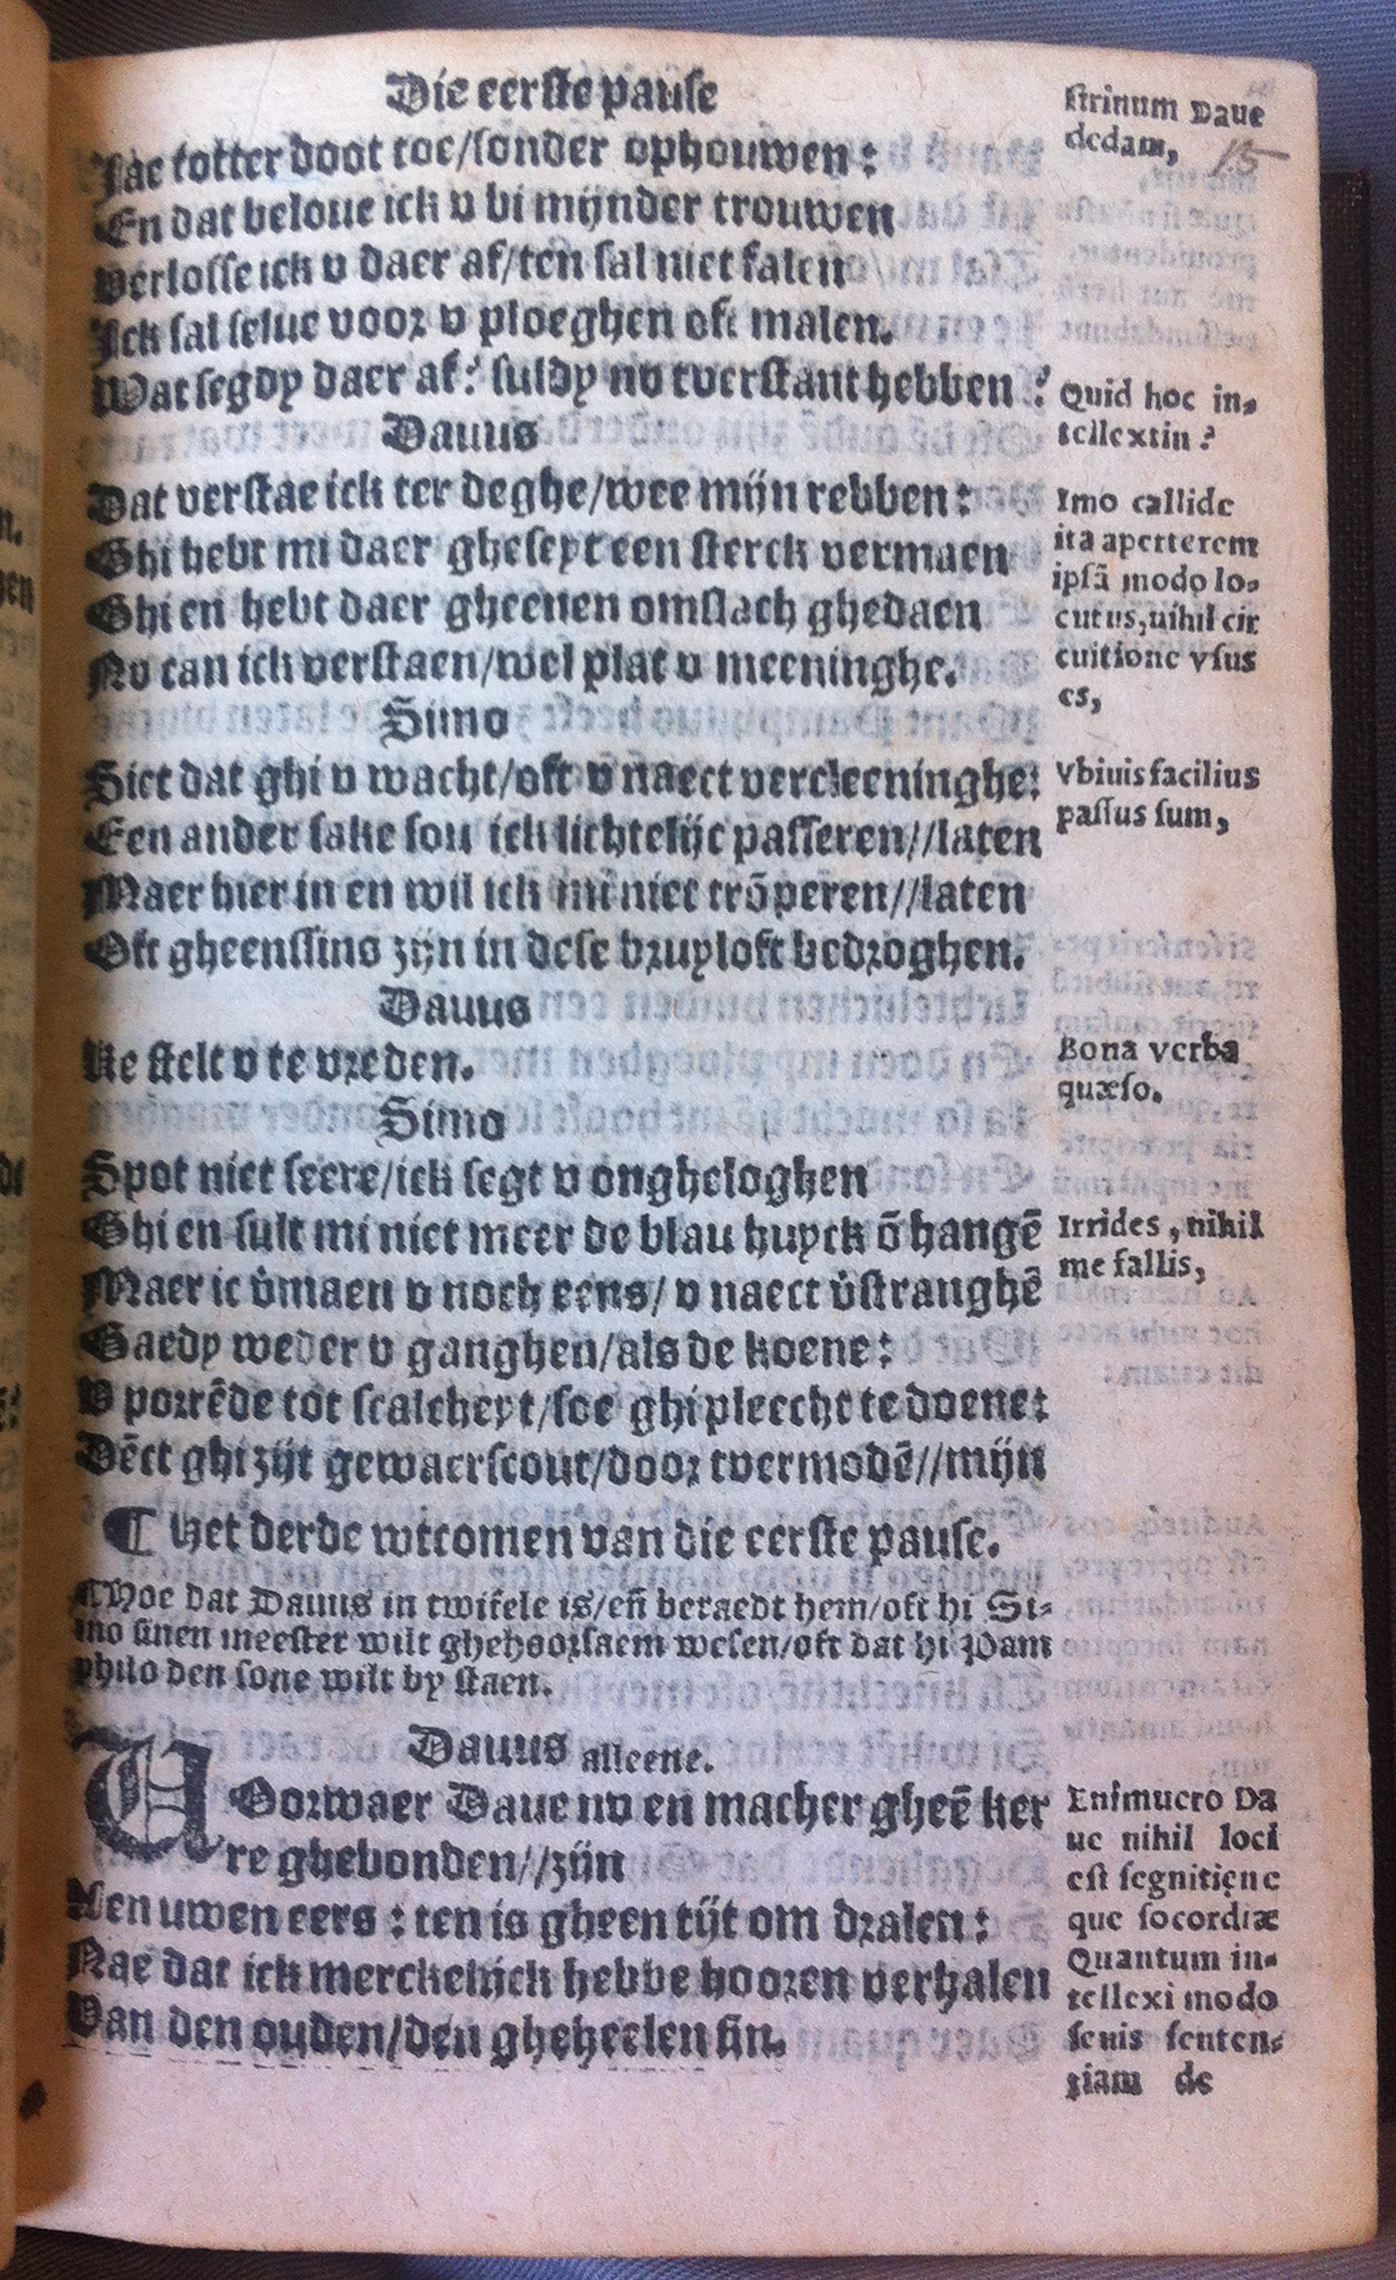 Die eerste pause
Jae totter doot toe/sonder ophouwen:
En dat beloue ick v bi mijnder trouwen
Verlosse ick v daer af/ten sal niet falen
Ick sal selue voor v ploeghen oft malen.
Wat segdy daer af? suldy nv tverstant hebben?
Dauus
Dat verstae ick ter deghe/wee mijn rebben:
Ghi hebt mi daer gheseyt een sterck vermaen
Ghi en hebt daer gheenen omslach ghedaen
Nv can ick verstaen/wel plat v meeninghe.
Simo
Siet dat ghi v wacht/oft v naect vercleeninghe:
Een ander sake sou ick lichtelijc passeren//laten
Maer hier in en wil ick mi niet trõperen//laten
Oft gheenssins zijn in dese bruyloft bedroghen.
Dauus
Ke stelt v te vreden.
Simo
Spot niet seere/ick segt v ongheloghen
Ghi en sult mi niet meer de blau huyck õ hangẽ
Maer ic v̓maen v noch eens/ v naect v̓stranghẽ
Gaedy weder v ganghen/als de koene:
V porrẽde tot scalcheyt/soe ghi pleecht te doene:
Dẽct ghi zijt gewaerscout/door tvermodẽ//mijn
¶ Het derde wtcomen van die eerste pause.
¶ Hoe dat Dauus in twifele is/eñ beraedt hem/oft hi Si-
mo sinen meester wilt ghehoorsaem wesen/oft dat hi Pam
philo den sone wilt by staen.
Dauus alleene.
VOorwaer Daue nv en macher gheẽ ker
re ghebonden//zijn
Aen uwen eers: ten is gheen tijt om dralen:
Nae dat ick mercke hick hebbe hooren verhalen
Van den ouden/den gheheelen sin.
strinum Daue
dedam,
15
Quid hoc in-
tellextin?
Imo callide
ita aperterem
ipsã modo lo-
cutus, nihil cir
cuitione vsus
es,
Vbiuis facilius
passus sum,
Bona verba
quæso.
Irrides, nihil
me fallis,
Enimuero Da
ue nihil loci
est segnitięne
que socordiæ
Quantum in-
tellexi modo
senis senten-
tiam de